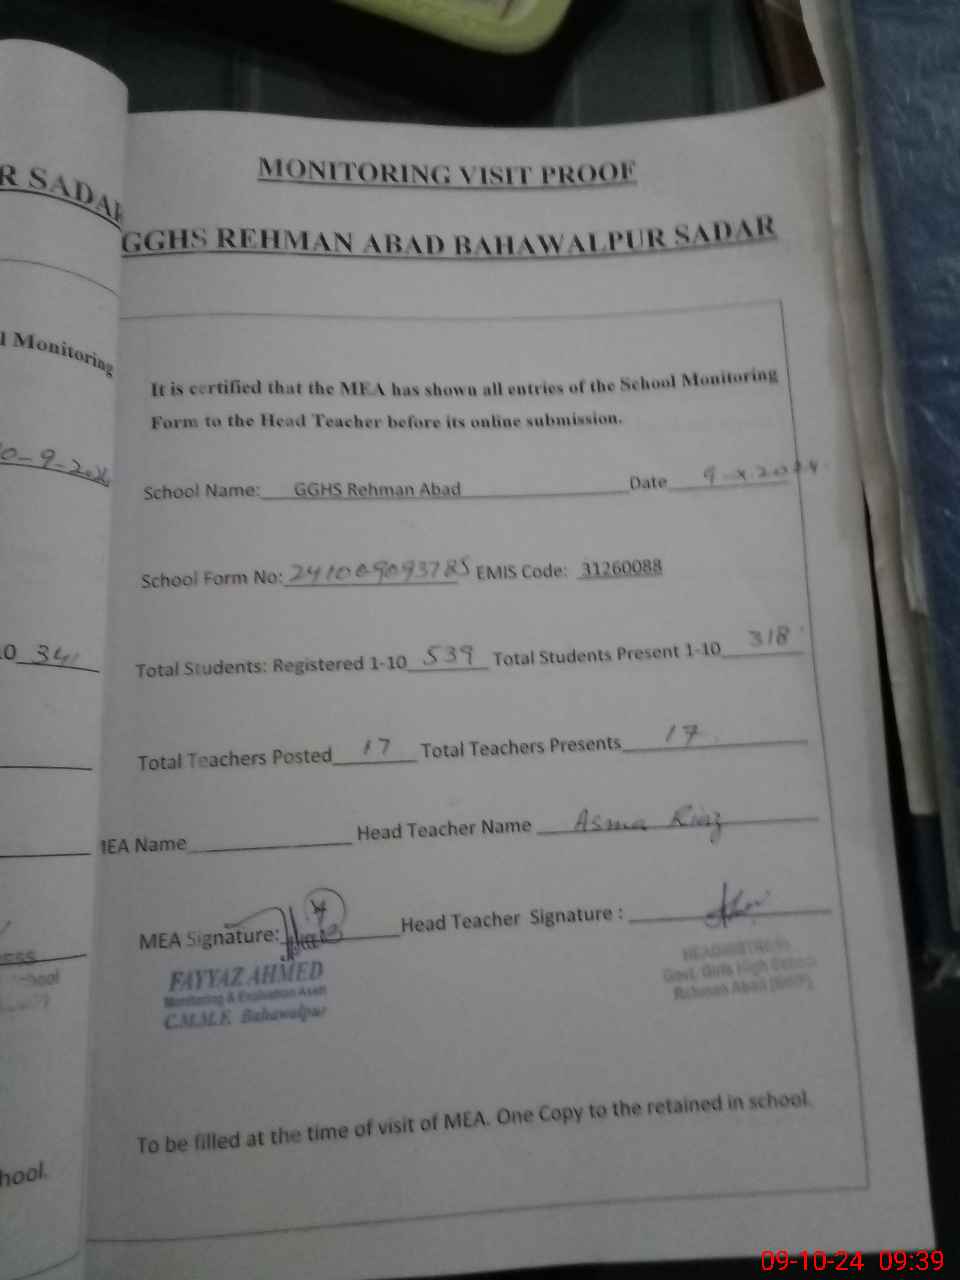 R SADAR
l Monitoring
0-9-2024
.0 341
hool.
MONITORING VISIT PROOF
GGHS REHMAN ABAD BAHAWALPUR SADAR
It is certified that the MEA has shown all entries of the School Monitoring
Form to the Head Teacher before its online submission.
School Name: GGHS Rehman Abad Date 9-x-2024
School Form No: 241009093785 EMIS Code: 31260088
Total Students: Registered 1-10 539 Total Students Present 1-10 318
Total Teachers Posted 17 Total Teachers Presents 17
MEA Name Head Teacher Name Asma Riaz
MEA Signature: Head Teacher Signature :
FAYYAZ AHMED
Monitoring & Evaluation Asstt
C.M.M.F. Bahawalpur
HEADMISTRESS
Govt. Girls High School
Rehman Abad (BWP)
To be filled at the time of visit of MEA. One Copy to the retained in school.
09-10-24 09:39